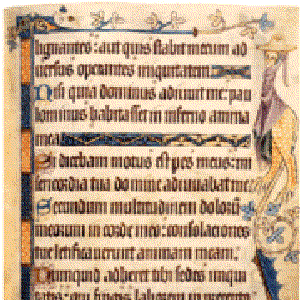 lignantes: aut quis stabit mecum ad
uersus operantes iniquitatem.
Nisi quia dominus adiuuit me: pau
lominus habitasset in inferno anima
mea.
Si dicebam motus est pes meus: mi
sericordia tua domine adiuuabat me.
Secundum multitudinem dolorum
meorum in corde meo: consolaciones
tue letificauerunt animam meam.
Numquid adheret tibi sedes iniqui
tatis: qui fingis laborem in precepto